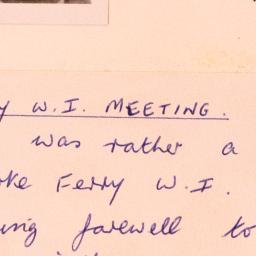 W.I. MEETING.
was rather a
Ferry W.I.
farewell to